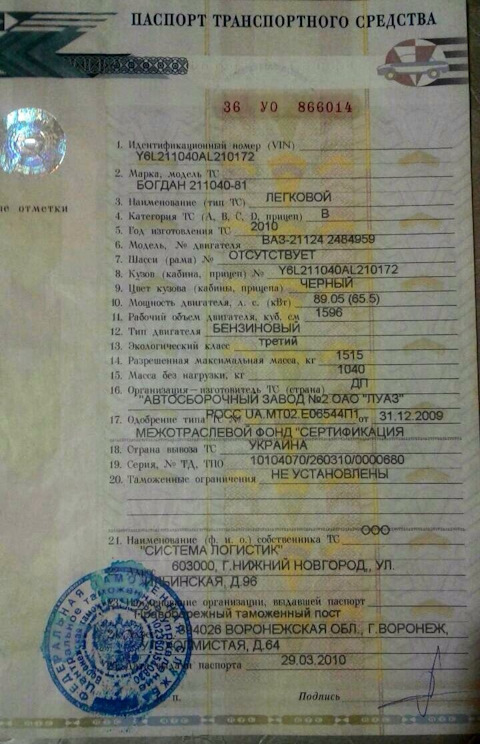 ПАСПОРТ ТРАНСПОРТНОГО СРЕДСТВА
36 УО 866014
1. Идентификационный номер (VIN)
Y6L211040AL210172
2. Марка, модель ТС
БОГДАН 211040-81
3. Наименование (тип ТС) ЛЕГКОВОЙ
ые отметки
4. Категория ТС (A, B, C, D, прицеп) B
5. Год изготовления ТС 2010
6. Модель, № двигателя ВАЗ-21124 2484959
7. Шасси (рама) № ОТСУТСТВУЕТ
8. Кузов (кабина, прицеп) № Y6L211040AL210172
9. Цвет кузова (кабины, прицепа) ЧЕРНЫЙ
10. Мощность двигателя, л. с. (кВт) 89.05 (65.5)
11. Рабочий объем двигателя, куб. см 1596
12. Тип двигателя БЕНЗИНОВЫЙ
13. Экологический класс третий
14. Разрешенная максимальная масса, кг 1515
15. Масса без нагрузки, кг 1040
16. Организация–изготовитель ТС (страна) ДП
"АВТОСБОРОЧНЫЙ ЗАВОД №2 ОАО "ЛУАЗ"
17. Одобрение типа ТС № РОСС UA.МТ02.Е06544П1 от 31.12.2009
МЕЖОТРАСЛЕВОЙ ФОНД "СЕРТИФИКАЦИЯ
18. Страна вывоза ТС УКРАИНА
19. Серия, № ТД, ТПО 10104070/260310/0000680
20. Таможенные ограничения НЕ УСТАНОВЛЕНЫ
21. Наименование (ф. и. о.) собственника ТС ООО
"СИСТЕМА ЛОГИСТИК"
603000, Г.НИЖНИЙ НОВГОРОД,, УЛ.
ИЛЬИНСКАЯ, Д.96
организации, выдавшей паспорт
Правобережный таможенный пост
394026 ВОРОНЕЖСКАЯ ОБЛ., Г.ВОРОНЕЖ,
Д.64
паспорта 29.03.2010
п. Подпись